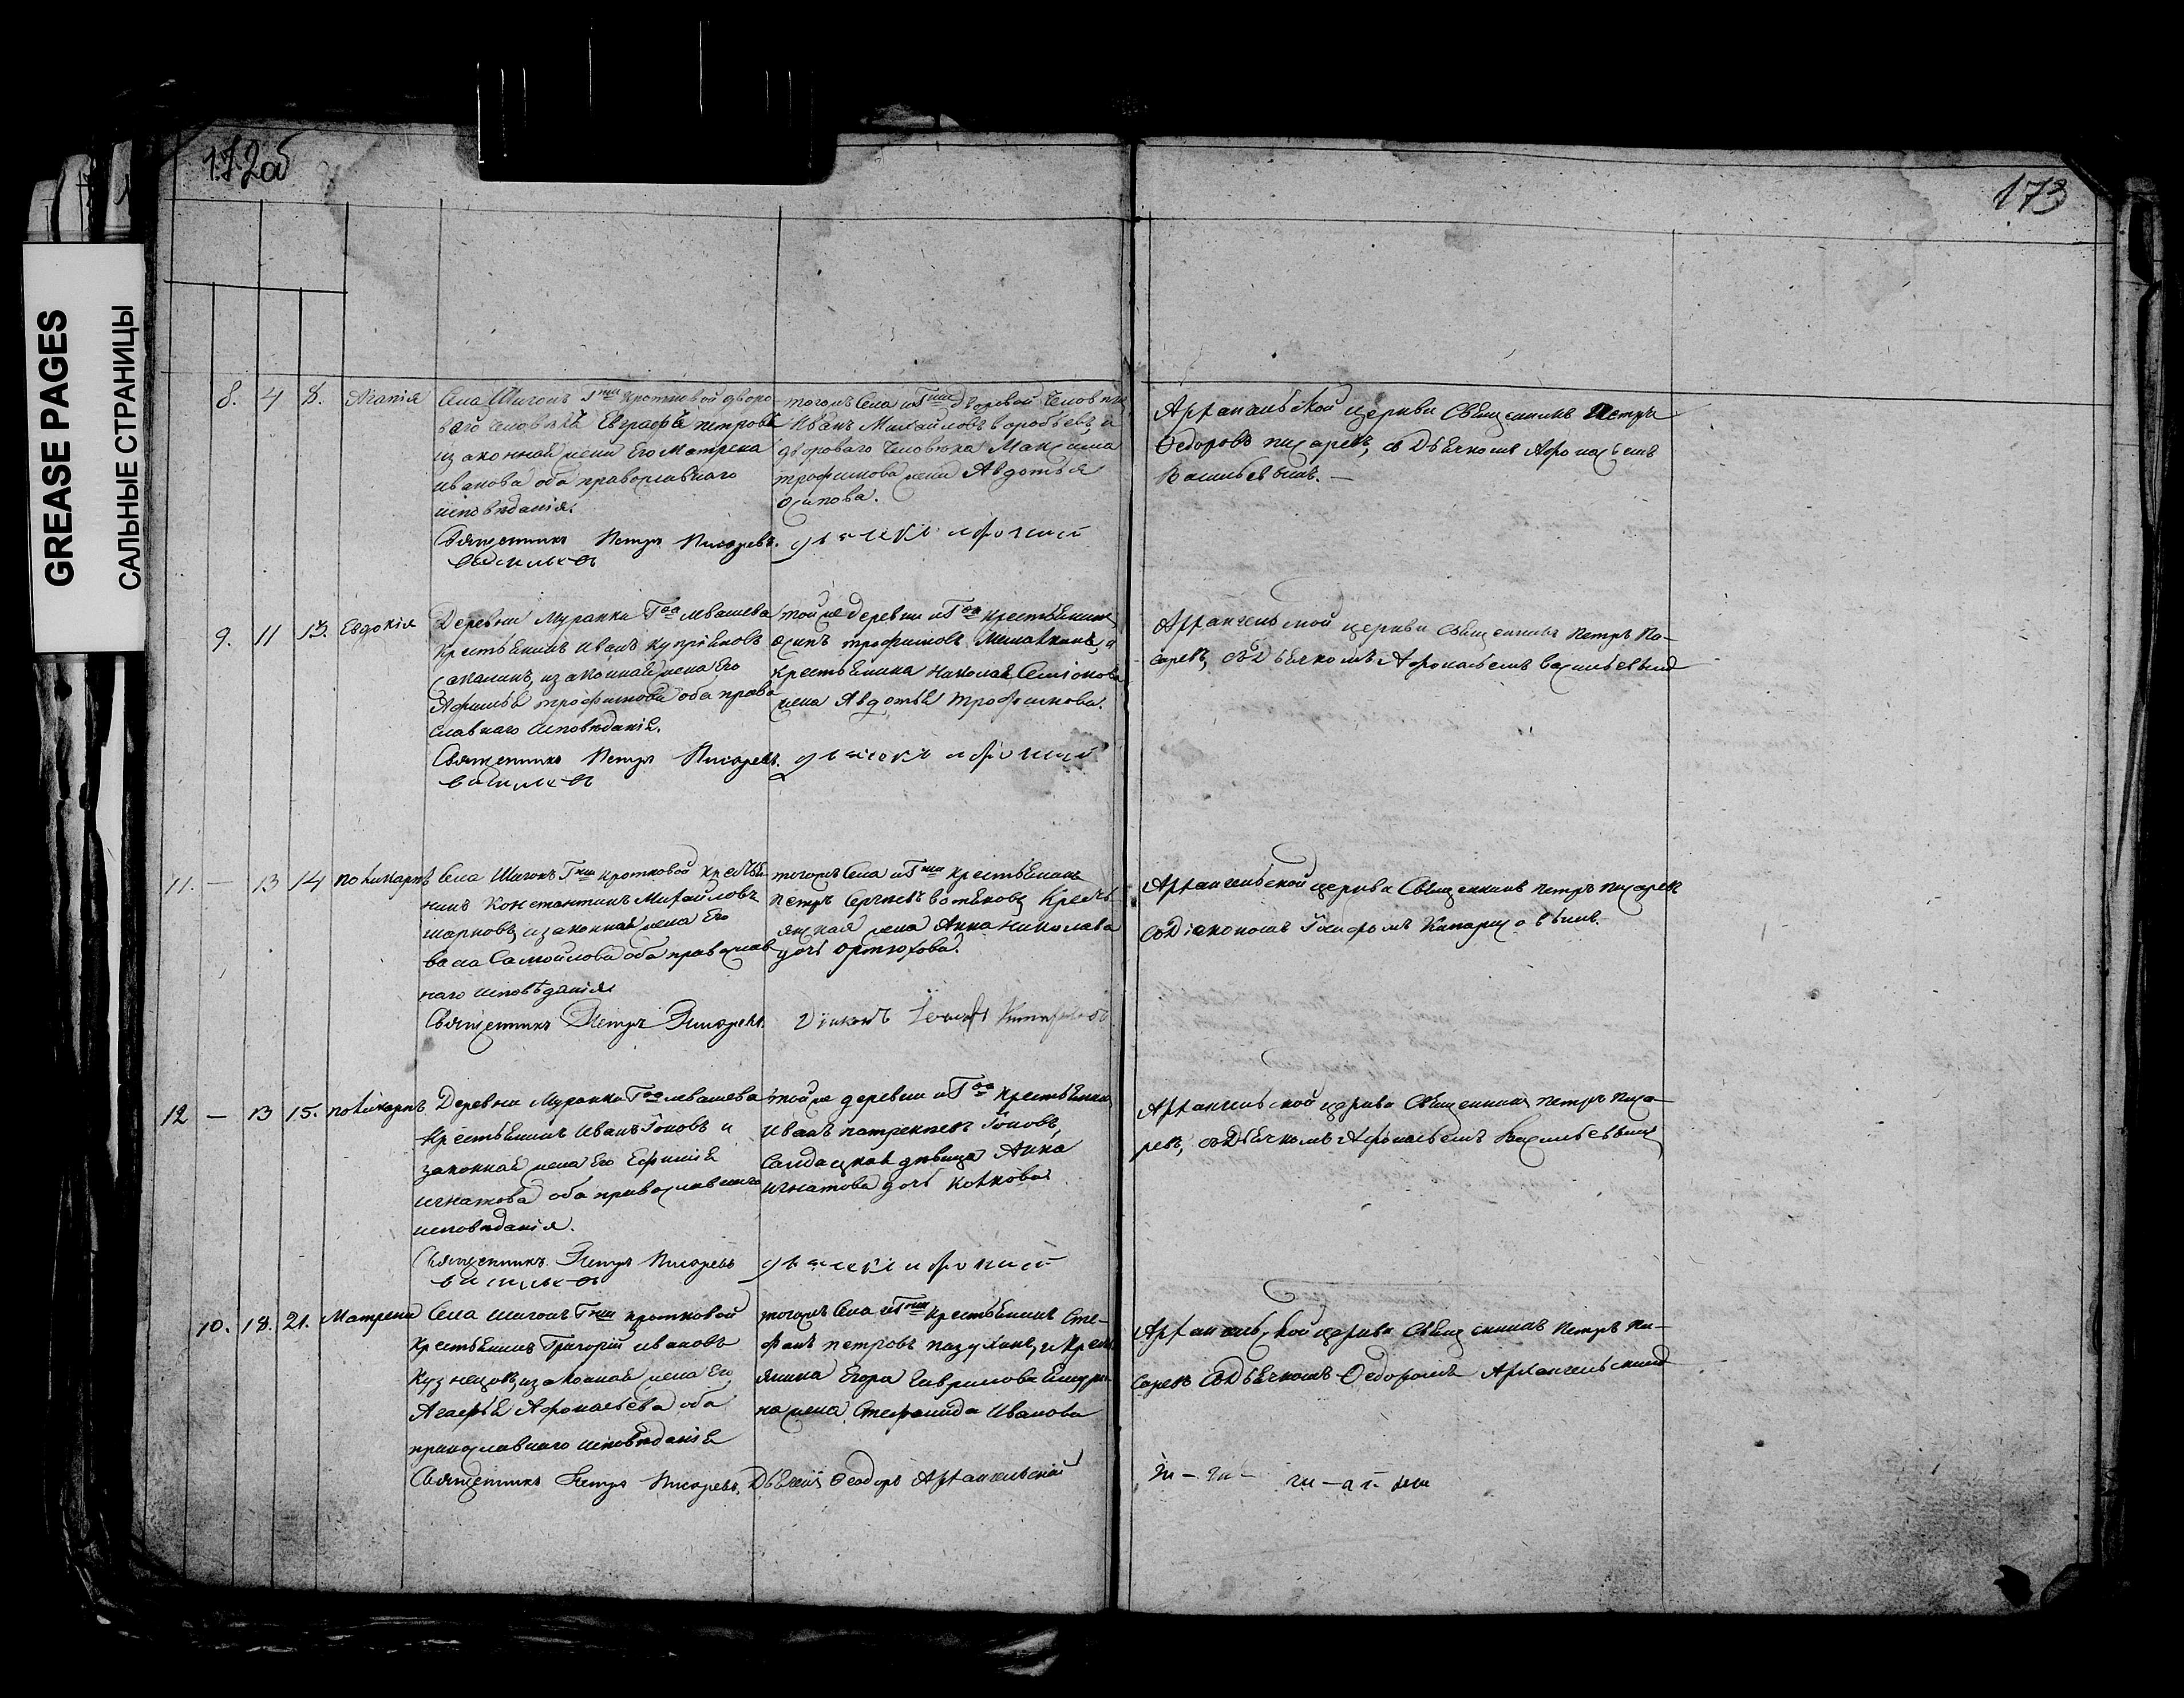 172об
173
GREASE PAGES
САЛЬНЫЕ СТРАНИЦЫ
8. 4 8. Агапія
Села Шигонъ Гжи Кротковой дворо-
ваго человѣка Евграфъ петровъ
изаконной жены Его Матрена
иванова оба православнаго
исповѣданія.
Священникъ Петръ Писаревъ.
васильевъ
тогожъ Села иГжи дворовой Человѣкъ
Иванъ Михайловъ воробьевъ, и
двороваго Человѣка Максима
трофимова жена Авдотья
Осипова.
дьячекъ афонасій
Архангельской церкви Священникъ Петръ
Ѳедоровъ писаревъ, съ Дьячкомъ Афонасьемъ
Васильевымъ. —
9. 11 13. Евдокія
Деревни Муранки Гна левашева
Крестьянинъ иванъ купріяновъ
изаконная жена Его
трофимова оба право
славнаго исповѣданія.
Священникъ Петръ Писаревъ.
васильевъ
тойже деревни иГна крестьянинъ
осипъ трофимовъ и
крестьянина николая Семіонова
жена Авдотья трофимова.
дьячекъ афонасій
Архангельской церкви священникъ петръ Пи-
саревъ, съ Дьячкомъ Афонасьемъ васильевымъ
11. — 13 14 поликарпъ
Села Шигонъ Гжи кротковой крестья-
нинъ Константинъ Михайловъ
жарковъ, изаконная жена Его
васа Самойлова оба православ
наго исповѣданія
Священникъ Петръ Писаревъ.
тогожъ Села иГжи крестьянинъ
петръ Сергѣевъ крестья
янская жена Анна николаева
дочь ортюхова.
Діаконъ Іосифъ
Архангельской церкви Священникъ петръ писаревъ
съ Діакономъ Іосифомъ
12 — 13 15. поликарпъ
Деревни Муранки Гна левашева
Крестьянинъ Иванъ Іоновъ и
законная жена Его Ефимія
игнатова оба православнаго
исповѣданія.
Священникъ Петръ Писаревъ
васильевъ
тойже деревни иГна Крестьянинъ
Иванъ Іоновъ,
Салдацкая дѣвица Анна
игнатова дочь
дьячекъ афонасій
Архангельской церкви Священникъ петръ Писа-
ревъ, съ Дьячкомъ Афонасьемъ Васильевымъ
10. 18. 21. Матрена
Села шигонъ Гжи кротковой
Крестьянинъ Григорій ивановъ
Кузнецовъ, изаконная жена Его
Агафья Афонасьева оба
православнаго исповѣданія
Священникъ Петръ Писаревъ.
тогожъ Села иГжи крестьянинъ Сте-
фанъ петровъ пазухинъ, и крестья
янина Егора Гаврилова
на жена Стефанида Иванова
Дьячекъ Ѳеодоръ Архангельскій
Архангельской церкви Священникъ Петръ Пи-
саревъ съ Дьячкомъ Ѳедоромъ Архангельскимъ